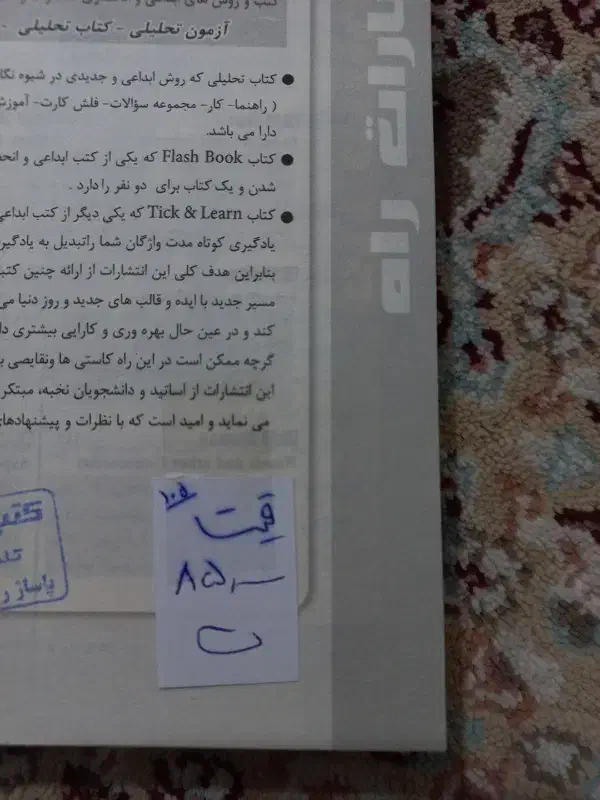 آزمون تحلیلی - کتاب تحلیلی -
● کتاب تحلیلی که روش ابداعی و جدیدی در شیوه نگا
( راهنما- کار- مجموعه سؤالات- فلش کارت- آموزش
دارا می باشد.
● کتاب Flash Book که یکی از کتب ابداعی و انحص
شدن و یک کتاب برای دو نفر را دارد .
● کتاب Tick & Learn که یکی دیگر از کتب ابداعی
یادگیری کوتاه مدت واژگان شما را تبدیل به یادگیر
بنابراین هدف کلی این انتشارات از ارائه چنین کتبا
مسیر جدید با ایده و قالب های جدید و روز دنیا می
کند و در عین حال بهره وری و کارایی بیشتری دا
گرچه ممکن است در این راه کاستی ها ونقایصی ب
این انتشارات از اساتید و دانشجویان نخبه، مبتکر
می نماید و امید است که با نظرات و پیشنهادهای
ارات راه
قیمت
۸۵۰۰۰
ت
پاساژ